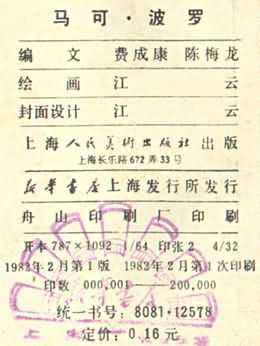 马可·波罗
编文 费成康 陈梅龙
绘画 江云
封面设计 江云
上海人民美术出版社出版
上海长乐路672弄33号
新华书店上海发行所发行
舟山印刷厂印刷
开本787×1092 1/64 印张2 4/32
1982年2月第1版 1982年2月第1次印刷
印数 000,001——200,000
统一书号：8081·12578
定价：0.16元